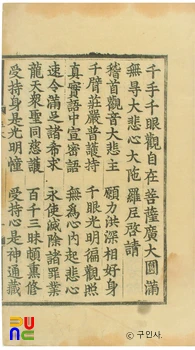 千手千眼觀自在菩薩廣大圓滿
無导大悲心大陁羅尼啓請
稽首觀音大悲主 願力洪深相好身
千臂莊嚴普護持 千眼光明徧觀照
眞實語中宣密語 無爲心內起悲心
速令滿足諸希求 永使滅除諸罪業
龍天衆聖同慈護 百千三昧頓熏修
受持身是光明幢 受持心是神通藏
© 구인사